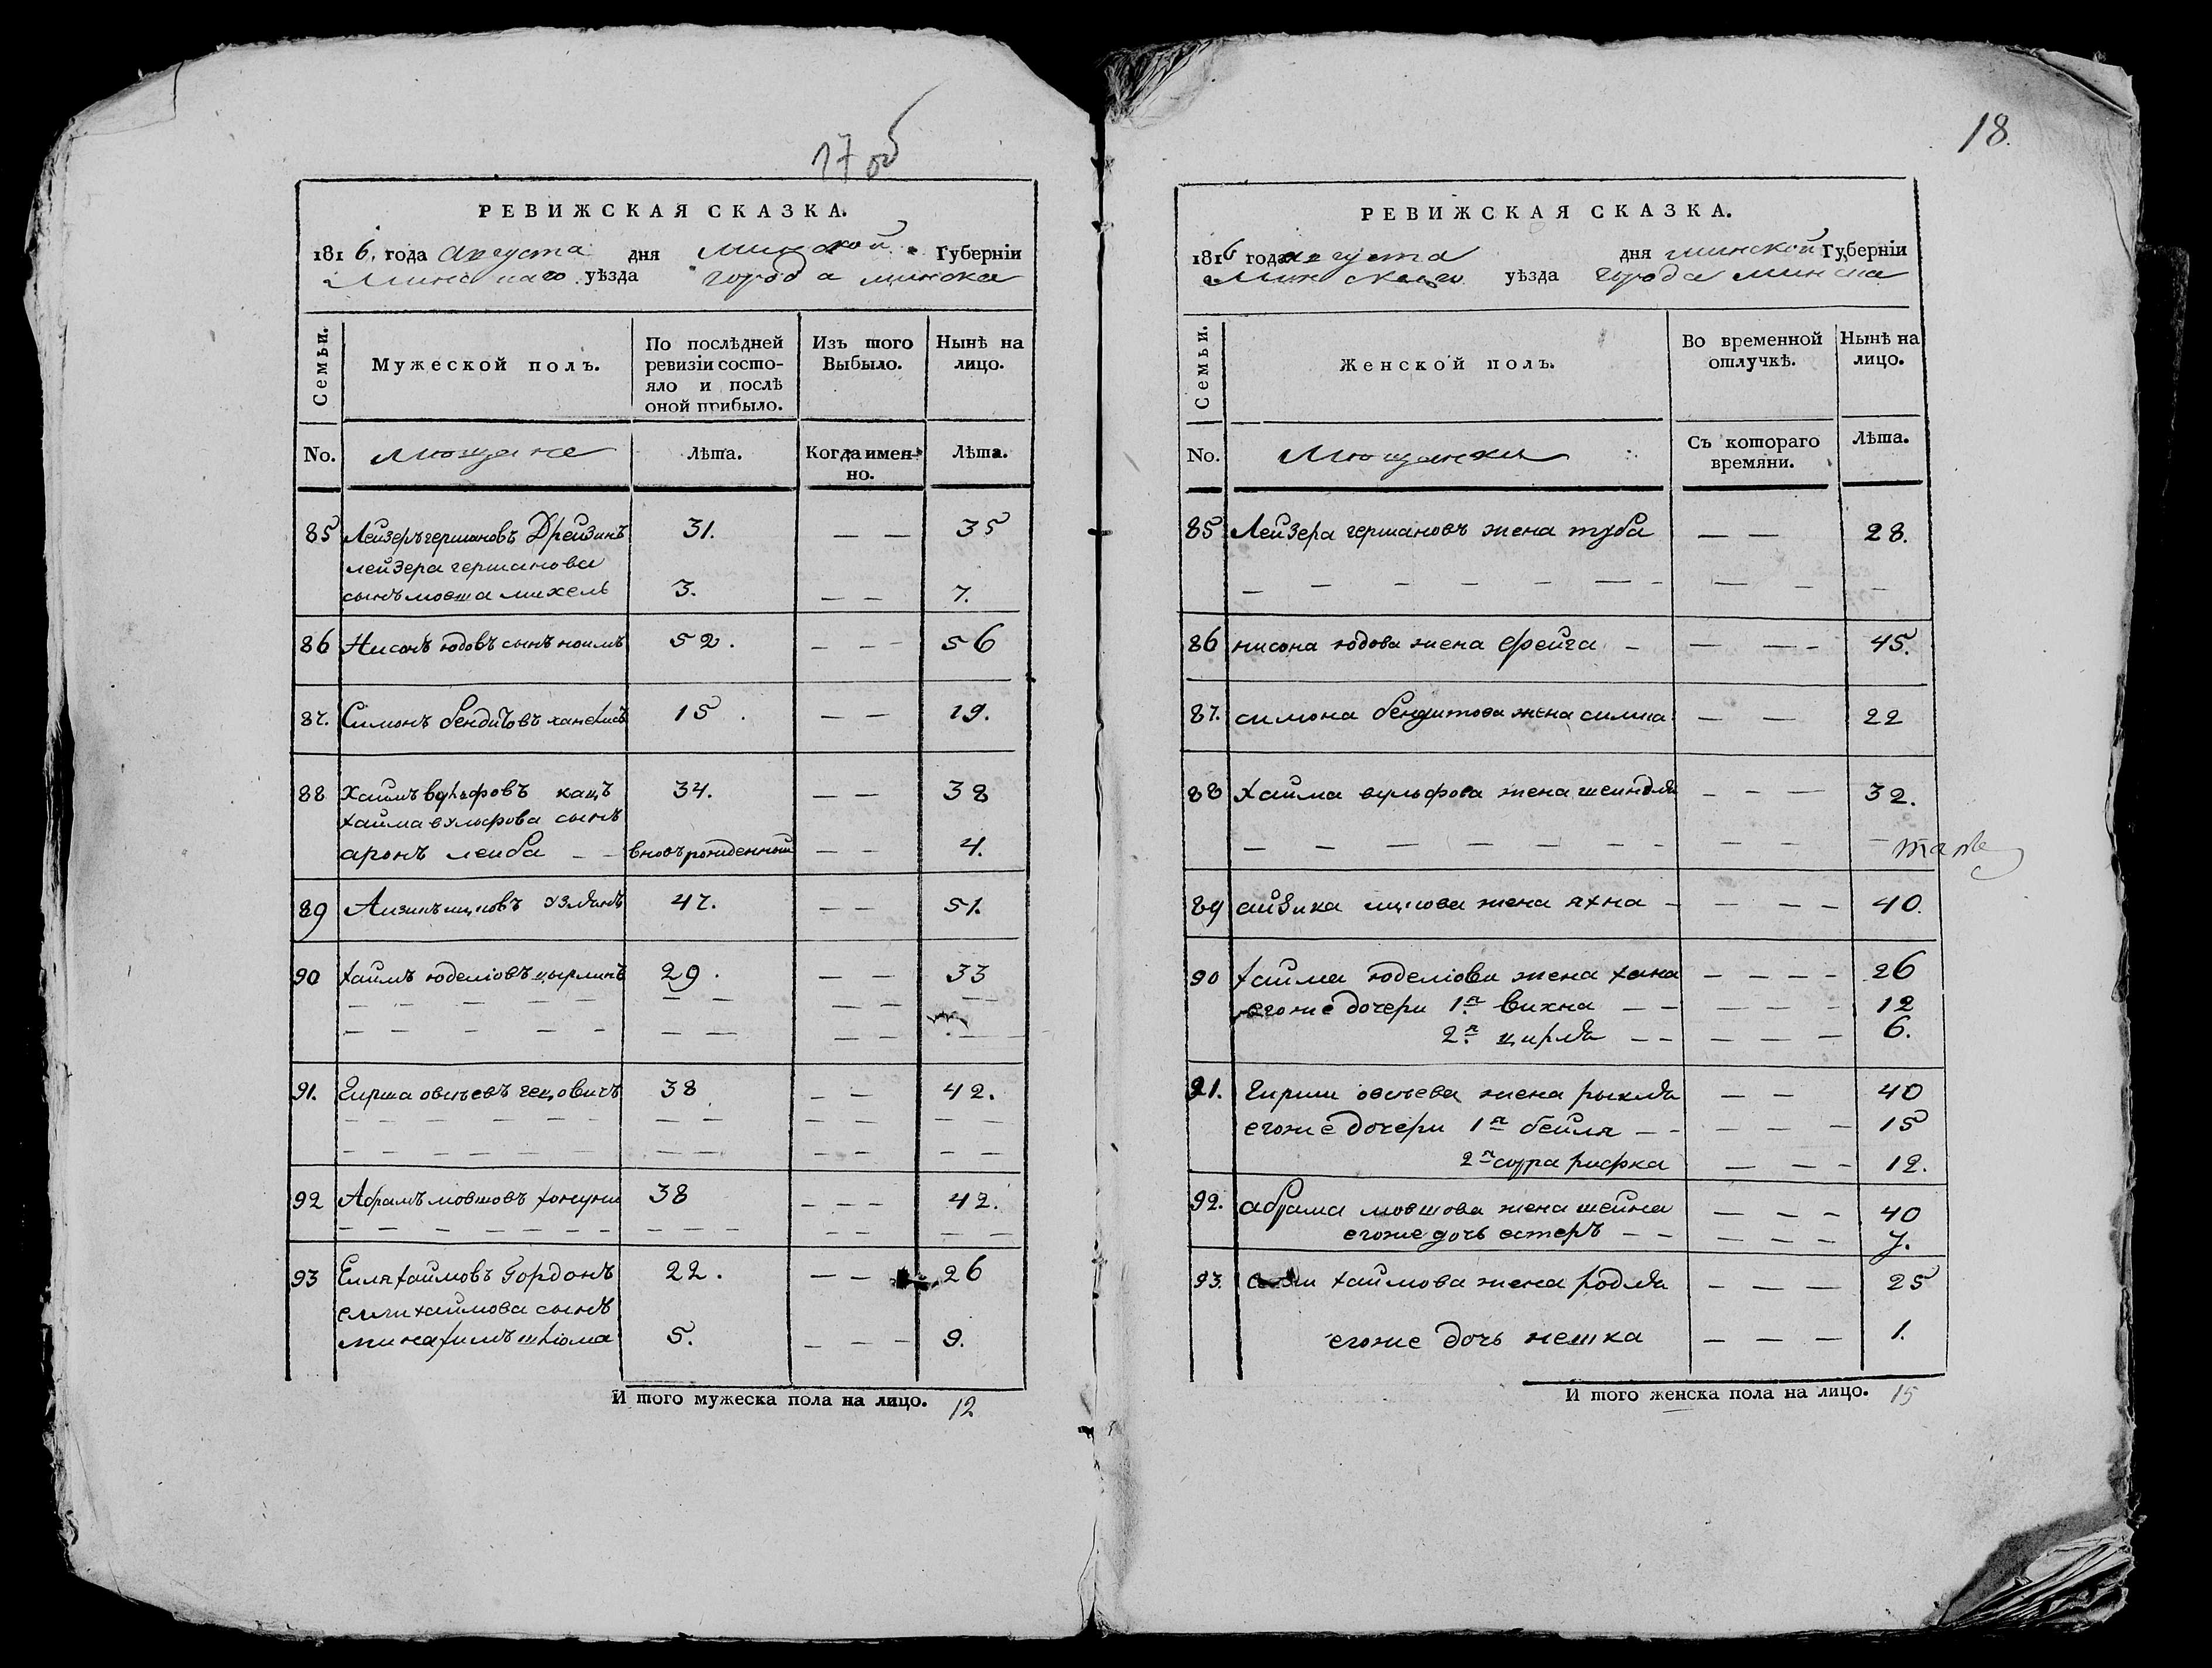 17 об
РЕВИЖСКАЯ СКАЗКА.
1816. года августа дня минской Губерніи
Минскаго уѣзда города минска
Семьи.
Мужеской полъ.
По послѣдней ревизіи состо-
яло и послѣ
оной прибыло.
Изъ того Выбыло.
Нынѣ на лицо.
No. Мющане Лѣта. Когда имен-
но. Лѣта.
85 Лейзеръ гершановъ Дрейзинъ 31. — — 35
лейзера гершанова
сынъ мовша михель 3. — — 7.
86 Нисонъ юдовъ сынъ 52. — — — 56
87. Симонъ бендитовъ 15. — — 19.
88 Хаимъ вульфовъ кацъ 34. — — 38
хаима вульфова сынъ
аронъ лейба — — вновърожденный — — 4.
89 Айзикъ ицковъ 47. — — 51.
90 хаимъ юделіовъ цырлинъ 29. — — 33
91. Гирша овсѣевъ гецовичъ 38 — — 42.
92 Абрамъ мовшовъ 38 — — — 42.
93 Елля хаимовъ Гордонъ 22. — — 26
елли хаимова сынъ
шліома 5. — — — 9.
И того мужеска пола на лицо. 12
18.
РЕВИЖСКАЯ СКАЗКА.
1816 года августа дня минской Губерніи
Минскаго уѣзда города минска
Семьи.
Женской полъ.
Во временной отлучкѣ.
Нынѣ на лицо.
No. Мющанки Съ котораго времяни. Лѣта.
85 Лейзера гершановъ жена туба — — 28.
86 нисона юдова жена фейга — — — — 45.
87. симона бендитова жена симка — — 22
88 хаима вульфова жена шейндля — — — 32.
89 айзика ицкова жена яхна — — — — 40.
90 хаима юделіова жена хана — — — — 26
егоже дочери 1я вихна — — — — — 12
2я цирля — — — — — 6.
91. Гирши овсѣева жена рыкля — — 40
егоже дочери 1я бейля — — — — — 15
2я сора рифка — — — 12.
92. абрама мовшова жена шейна — — — 40
егоже дочь естеръ — — — — — 7.
93. елли хаимова жена родля — — — 25
егоже дочь нешка — — — 1.
И того женска пола на лицо. 15